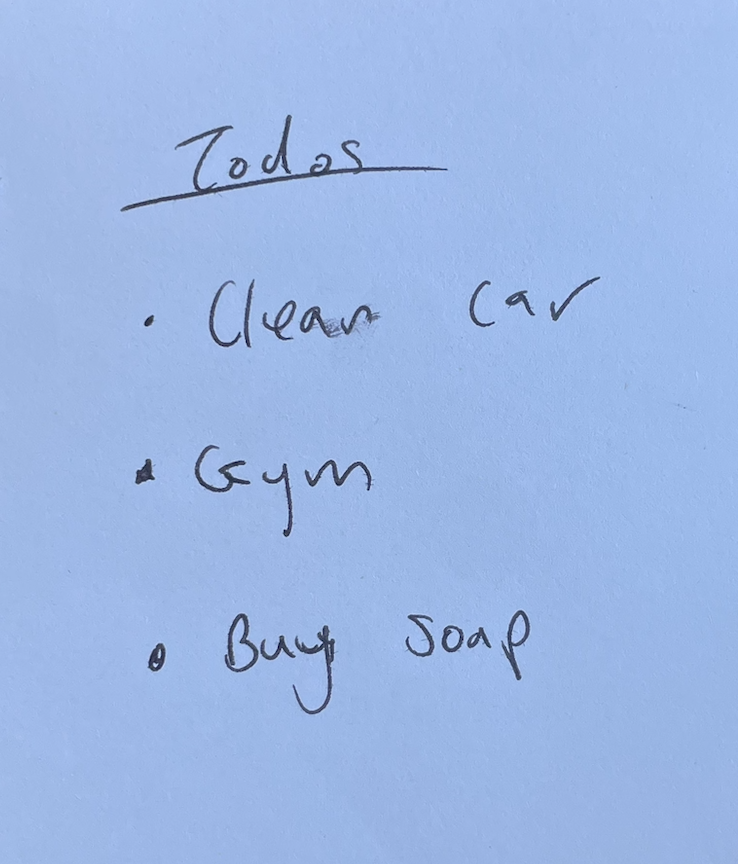 Todos
• Clean Car
• Gym
• Buy Soap